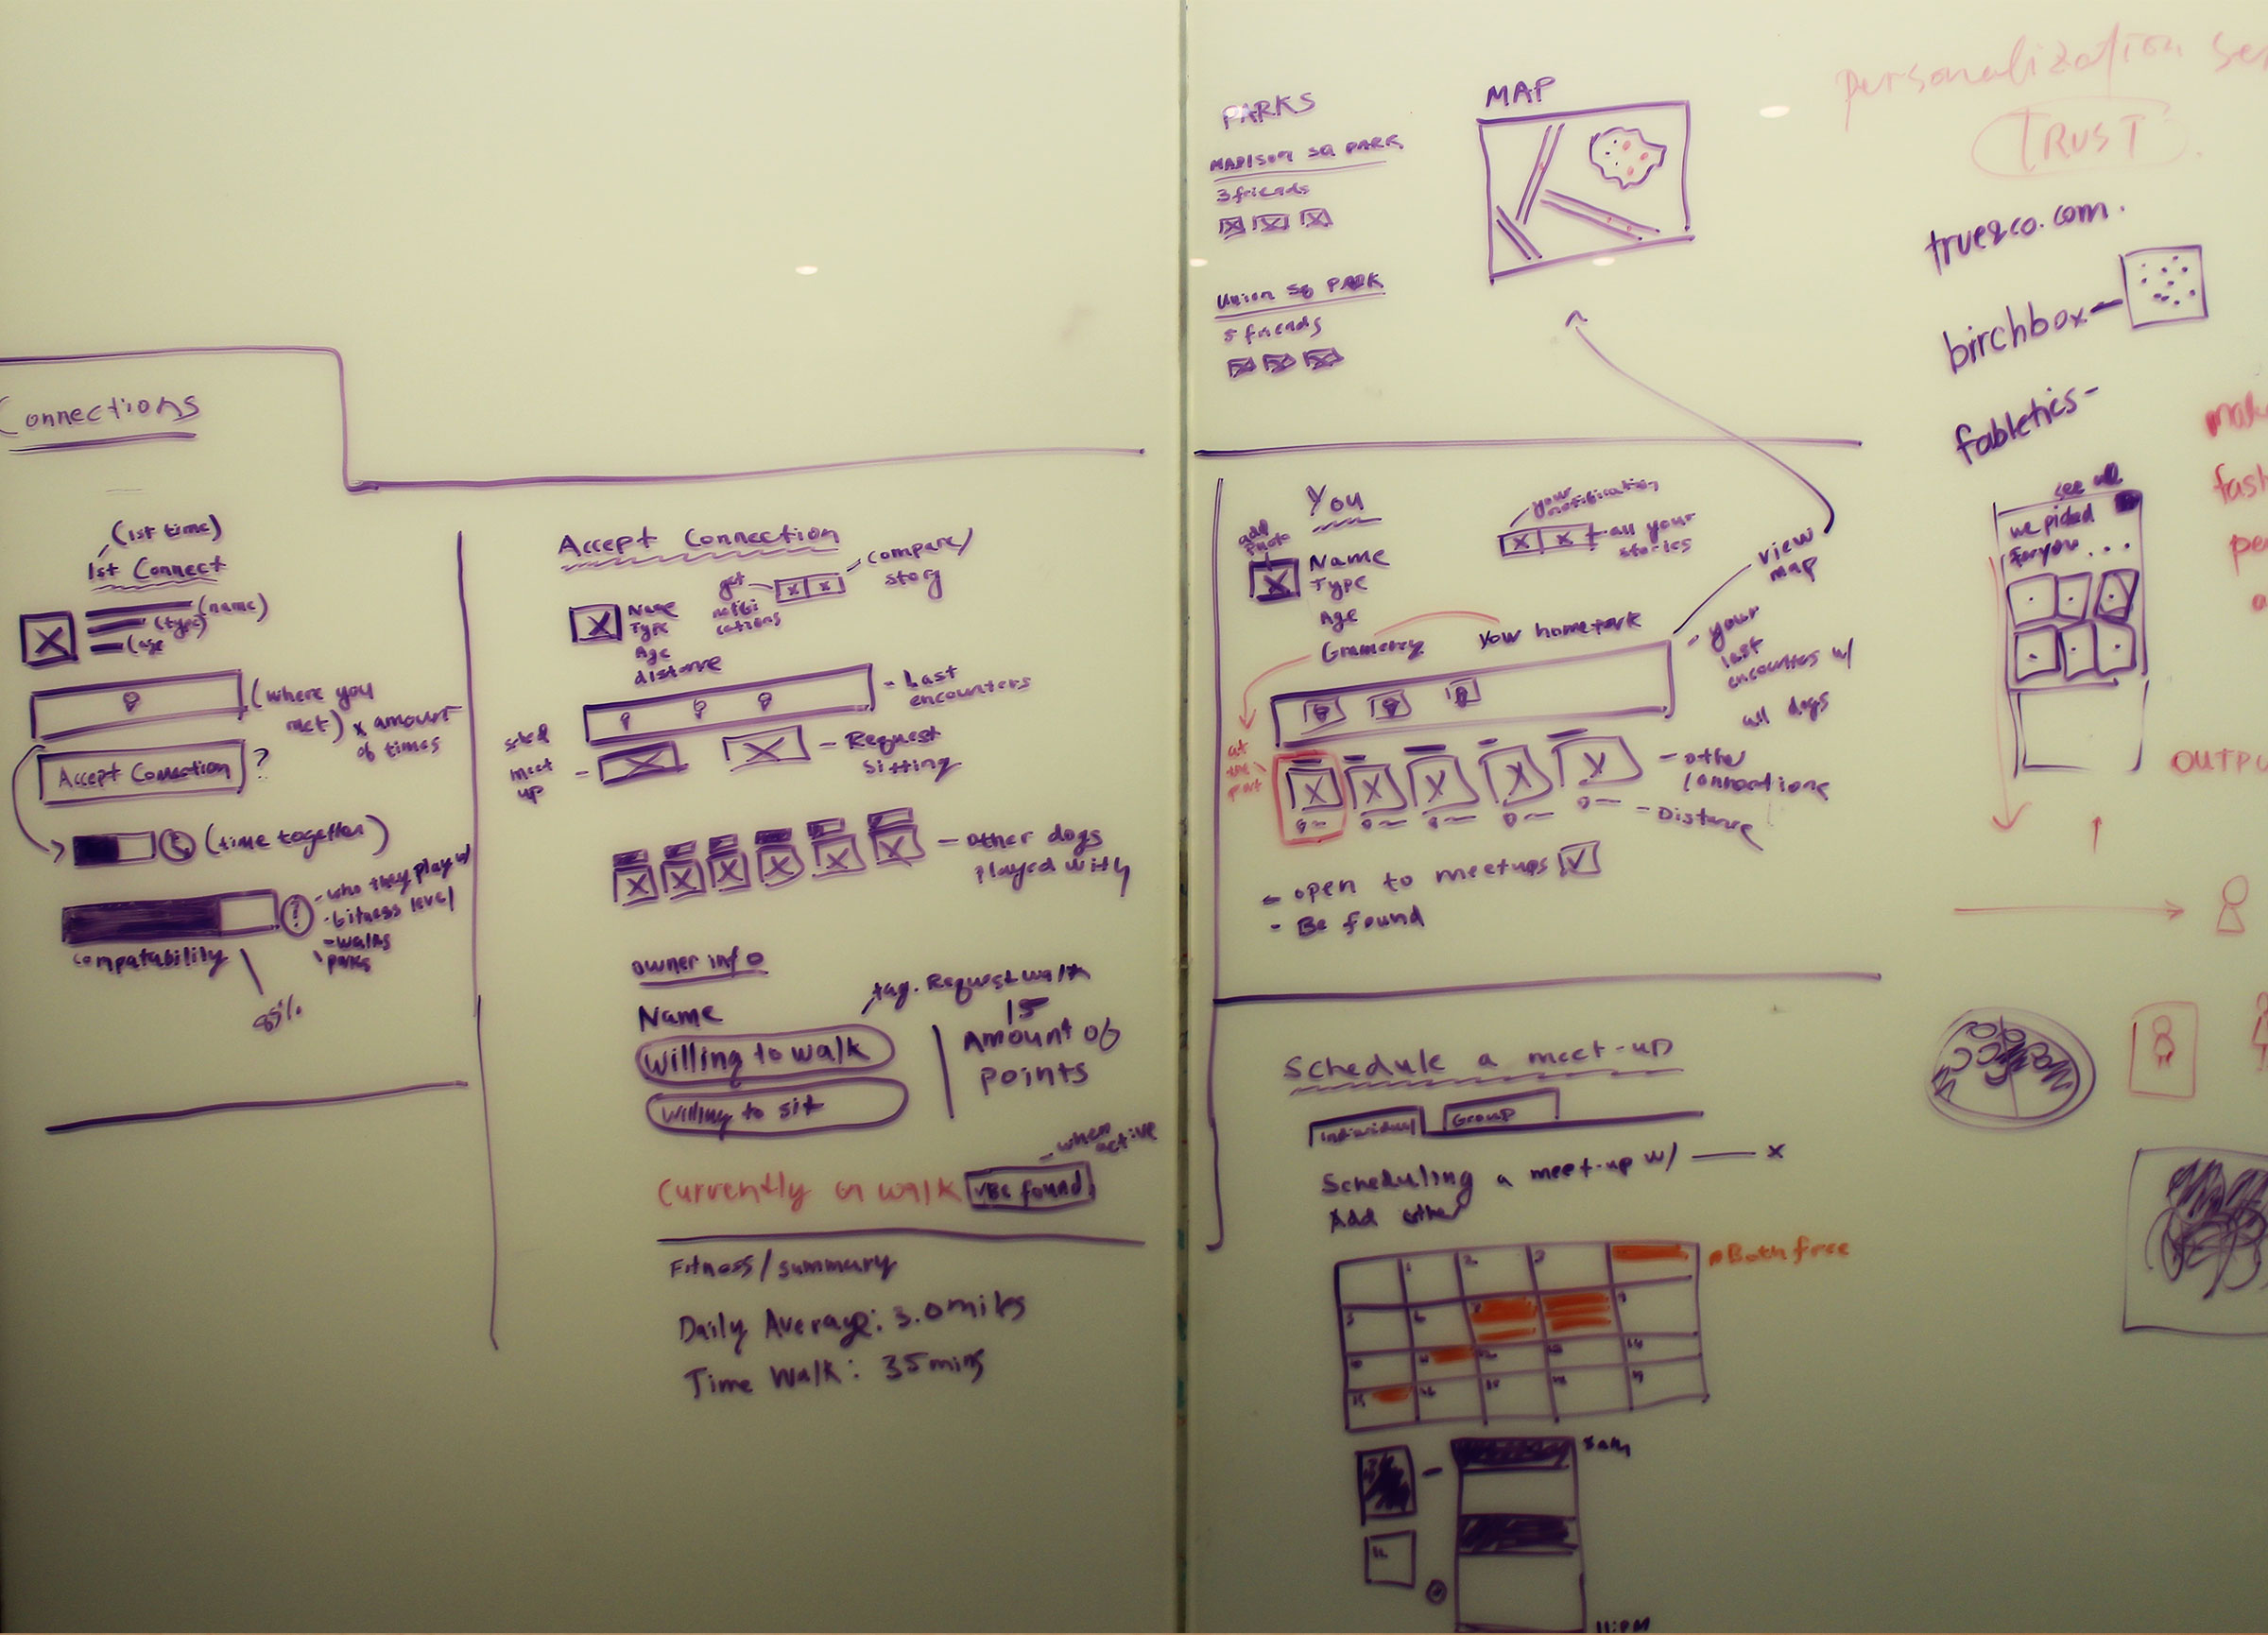 Connections
(1st time)
1st Connect
(name)
(type)
(age
(where you
met) x amount
of times
Accept Connection ?
(time together)
? - who they play w/
- fitness level
- walks
parks
compatability
85%
Accept Connection
compare/
story
get
notifi
cations
Name
Type
Age
distance
- Last
encounters
sched
meet
up -
- Request
sitting
- other dogs
played with
owner info
Name
tag. Request walk
willing to walk
willing to sit
15
Amount of
points
- when
active
Currently on walk
Be found
Fitness/summary
Daily Average: 3.0 miles
Time Walk: 35 mins
PARKS
MADISON SQ PARK
3 friends
Union SQ PARK
5 friends
MAP
You
add
photo
Name
Type
Age
your
notification
all your
stories
view
map
Gramercy
your homepark
- your
last
encounters w/
all dogs
at
the
park
- other
connections
- Distance
- open to meetups
- Be found
Schedule a meet-up
Individual
Group
Scheduling a meet-up w/ x
Add other
1 2 3
5 6 9
Both free
11PM
personalization
TRUST
true&co.com.
birchbox-
fabletics-
see all
we picked
for you ...
fash
OUTPU